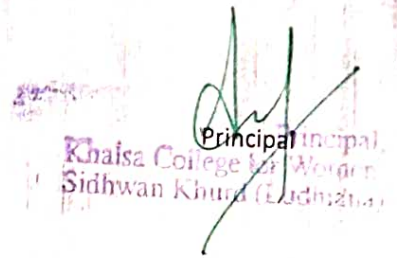 Principal
Principal,
Khalsa College for Women
Sidhwan Khurd (Ludhiana)